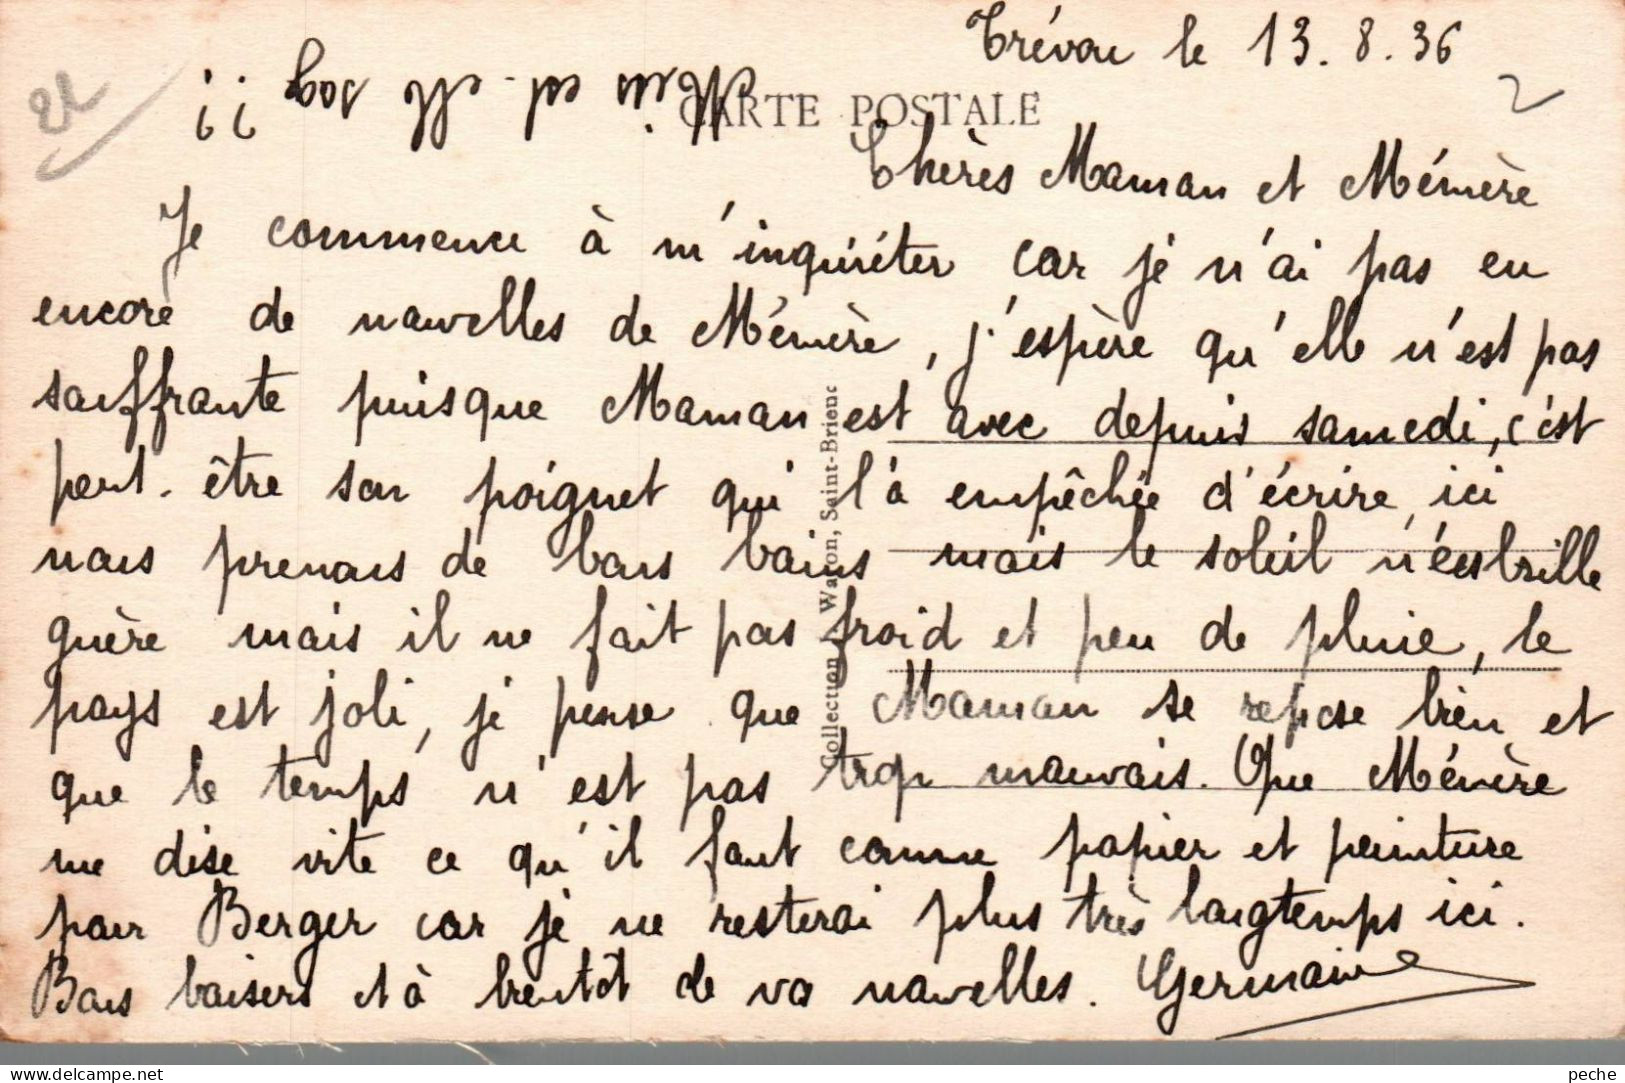 Trévou le 13.8.36
22
2
CARTE POSTALE
Chères Maman et Mémère
Je commence à m'inquiéter car je n'ai pas eu
encore de nouvelles de Mémère, j'espère qu'elle n'est pas
souffrante puisque Maman est avec depuis samedi, c'est
peut-être son poignet qui l'a empêchée d'écrire, ici
nous prenons de bons bains mais le soleil n'est brille
guère mais il ne fait pas froid et peu de pluie, le
pays est joli, je pense que Maman se repose bien et
que le temps n'est pas trop mauvais. Que Mémère
me dise vite ce qu'il faut comme papier et peinture
pour Berger car je ne resterai plus très longtemps ici.
Bons baisers et à bientôt de vos nouvelles. Germaine
Collection Waron, Saint-Brieuc
delcampe.net
peche